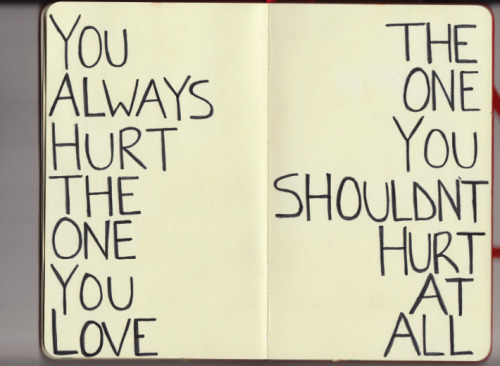 YOU
ALWAYS
HURT
THE
ONE
YOU
LOVE
THE
ONE
YOU
SHOULDN'T
HURT
AT
ALL